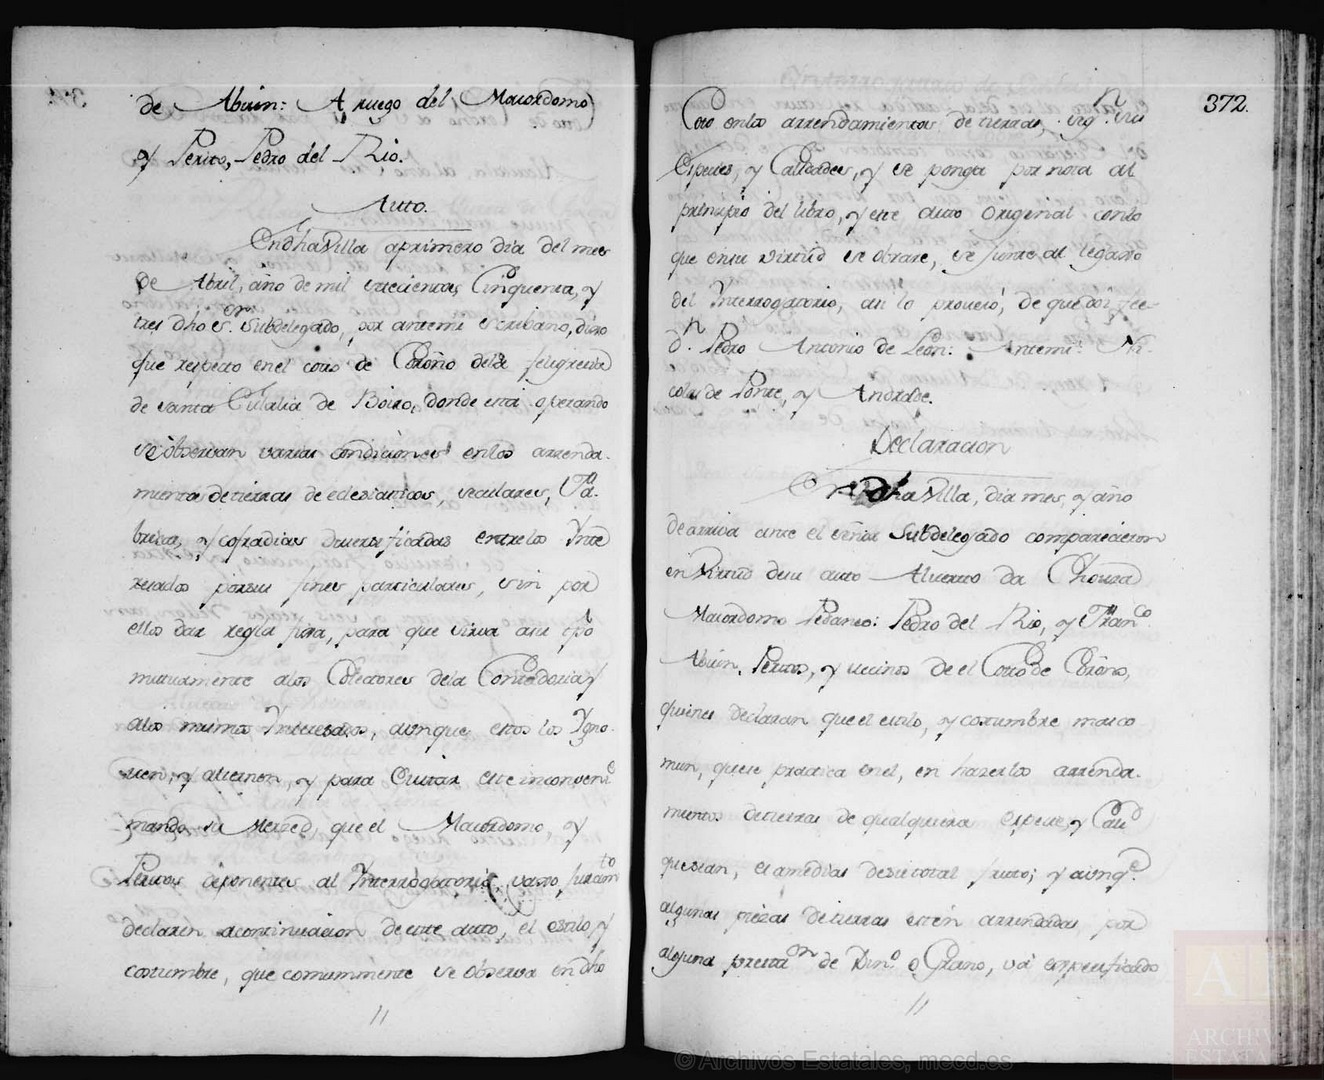 de Abuin: A ruego del Maiordomo
y Perito, Pedro del Rio.
Auto.
En dha Villa a primero dia del mes
de Abril, año de mil setecientos, Cinquenta, y
tres dho sr. Subdelegado, por antemi escribano, dixo
que respecto en el coto de Coroño dela feligresia
de santa Eulalia de Boiro, donde està operando
se observan varias condiciones en los arrenda-
mientos de tierras de eclesiasticos, seculares, Fa-
bricas, y cofradias diversificadas entre los Inte
resados por sus fines particulares, sin por
ellos dar regla fixa, para que sirva a su tpo
mutuamente a los Colectores dela Contaduria y
a los mismos Interesados, aunque estos los Ygno-
ren, y alternen, y para Evitar este inconvente
mando, su Merced que el Maiordomo y
Peritos deponentes al Interrogatorio, vaxo juramto
declaren acontinuacion de este auto, el estilo, y
costumbre, que comunmente se observa en dho
372.
Coto en los arrendamientos de tierras, sign. sus
Especies, y Calidades, y se ponga por nota al
principio del libro, y este auto Original con lo
que en su virtùd se obrare, se junte al legaxo
del Interrogatorio, asi lo proveiò, de que doi fee-
Dn. Pedro Antonio de Leon: Antemi: Ni-
colas de Ponte, y Andrade.
Declaracion
En dha Villa, dia mes, y año
de arriva ante el señor Subdelegado comparecieron
en Virtud de su auto Alverto da Chouza
Maiordomo Pedaneo: Pedro del Rio, y Franco.
Abuin, Peritos, y vecinos de el Coto de Coroño,
quienes declaran que el estilo, y costumbre mas co
mun, que se practica en el, en hazer los arrenda-
mientos de tierras de qualquiera especie, y Calid
que sean, es a medias de su total fruto; y aunqe.
algunas piezas de tierras estèn arrendadas por
alguna prestaon de Dino. o Grano, và expecificado
© Archivos Estatales, mecd.es
ARCHIV
ESTATA